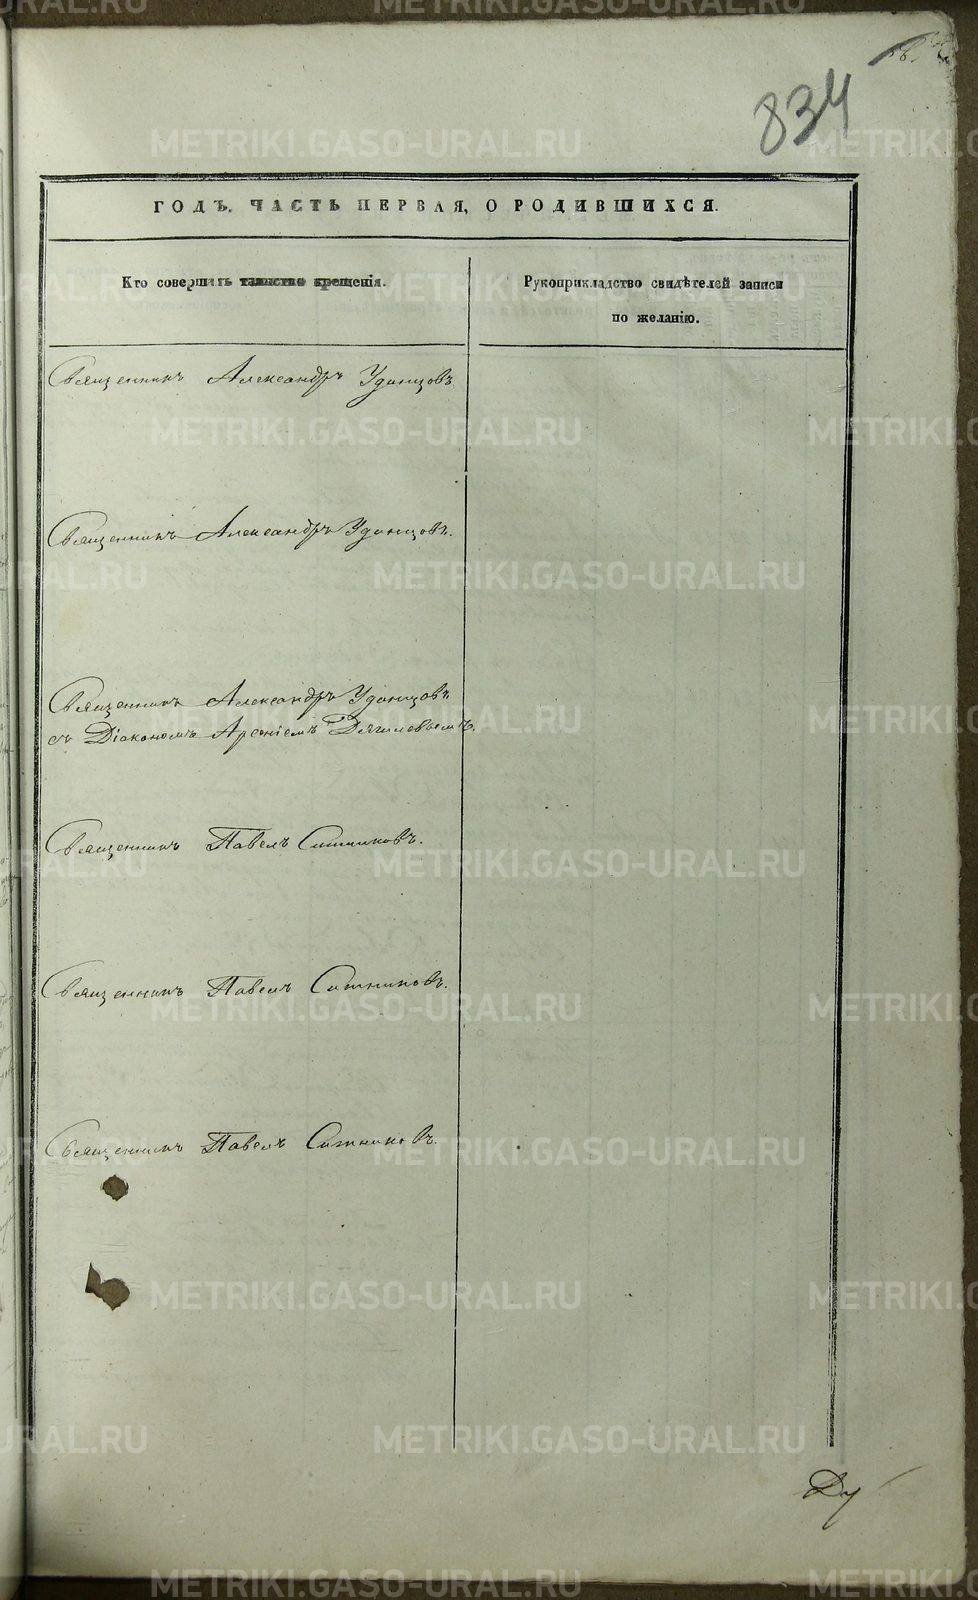 834
ГОДЪ. ЧАСТЬ ПЕРВАЯ, О РОДИВШИХСЯ.
Кто совершилъ таинство крещенія.
Рукоприкладство свидѣтелей записи
по желанію.
Священникъ Александръ Удинцовъ
Священникъ Александръ Удинцовъ.
Священникъ Александръ Удинцовъ
съ Діакономъ Арсеніемъ Дягилевымъ.
Священникъ Павелъ Ситниковъ.
Священникъ Павелъ Ситниковъ.
Священникъ Павелъ Ситниковъ.
Ду
METRIKI.GASO-URAL.RU